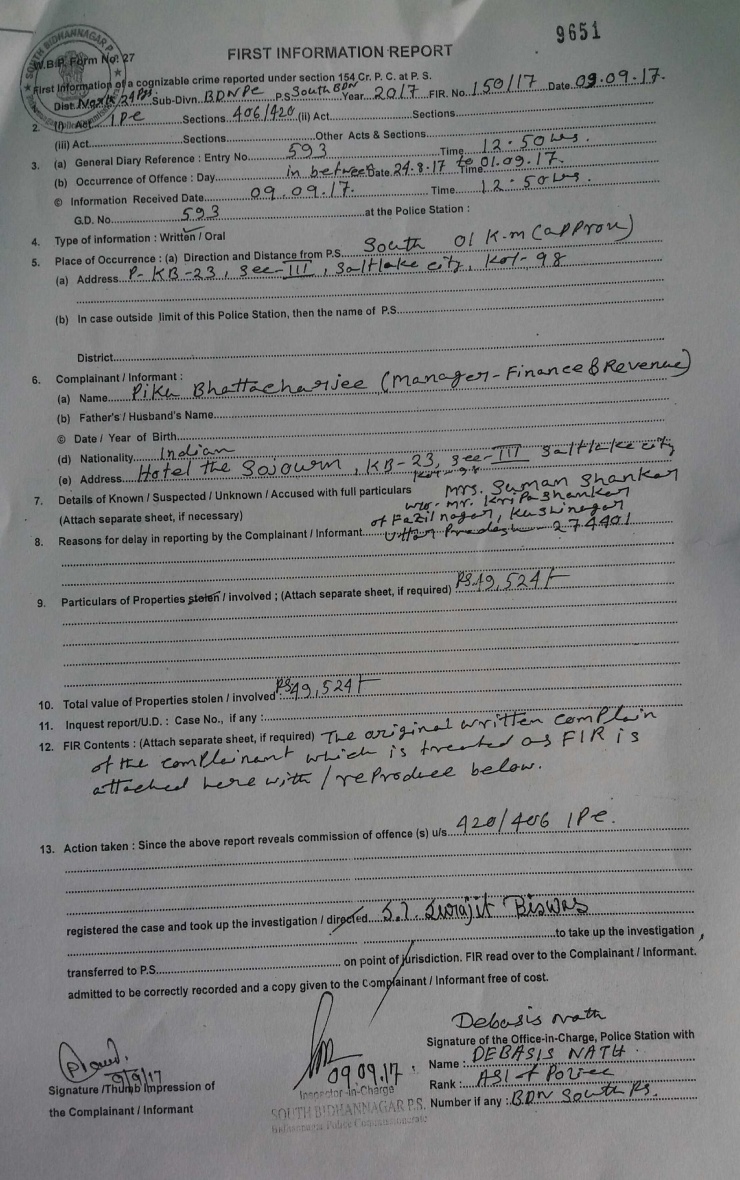 9651
SOUTH BIDHANNAGAR P.S.
W.B.P. Form No. 27
FIRST INFORMATION REPORT
First Information of a cognizable crime reported under section 154 Cr. P. C. at P. S.
Dist. North 24 Pgs Sub-Divn. BDNPC P.S. South BDN Year 2017 FIR. No. 150/17 Date 09.09.17.
2. (I) Act IPC Sections 406/420 (ii) Act Sections
(iii) Act Sections Other Acts & Sections
3. (a) General Diary Reference : Entry No. 593 Time 12.50 hrs.
(b) Occurrence of Offence : Day in between Date 24-8-17 to 01.09.17. Time
© Information Received Date 09.09.17. Time 12.50 hrs.
G.D. No. 593 at the Police Station :
4. Type of information : Written / Oral
5. Place of Occurrence : (a) Direction and Distance from P.S. South 01 K.m (approx)
(a) Address P- KB-23, Sec-III, Saltlake city, Kol-98
(b) In case outside limit of this Police Station, then the name of P.S.
District
6. Complainant / Informant :
(a) Name Piku Bhattacharjee (Manager-Finance & Revenue)
(b) Father's / Husband's Name
© Date / Year of Birth
(d) Nationality Indian
(e) Address Hotel the Sojourn, KB-23, Sec-III Saltlake city
Kol-98
7. Details of Known / Suspected / Unknown / Accused with full particulars Mrs. Suman Shankar
w/o- Mr. Kripa Shankar
(Attach separate sheet, if necessary) of Fazilnagar, Kushinagar
8. Reasons for delay in reporting by the Complainant / Informant Uttar Pradesh - 274401
9. Particulars of Properties stolen / involved ; (Attach separate sheet, if required) Rs.49,524/-
10. Total value of Properties stolen / involved : Rs 49,524/-
11. Inquest report/U.D. : Case No., if any :
12. FIR Contents : (Attach separate sheet, if required) The original written complain
of the complainant which is treated as FIR is
attached here with / reproduce below.
13. Action taken : Since the above report reveals commission of offence (s) u/s 420/406 IPC.
registered the case and took up the investigation / directed S.I. Surajit Biswas
to take up the investigation ,
transferred to P.S. on point of jurisdiction. FIR read over to the Complainant / Informant.
admitted to be correctly recorded and a copy given to the Complainant / Informant free of cost.
Debasis Nath
Signature of the Office-in-Charge, Police Station with
9/9/17
Signature /Thumb Impression of
the Complainant / Informant
09.09.17.
Inspector-In-Charge
SOUTH BIDHANNAGAR P.S.
Bidhannagar Police Commissionerate
Name : DEBASIS NATH.
Rank : ASI of Police
Number if any : BDN South PS.